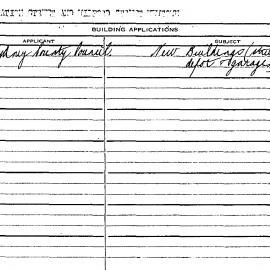 BUILDING APPLICATIONS
APPLICANT SUBJECT
dney County Council New Buildings
depot & garage